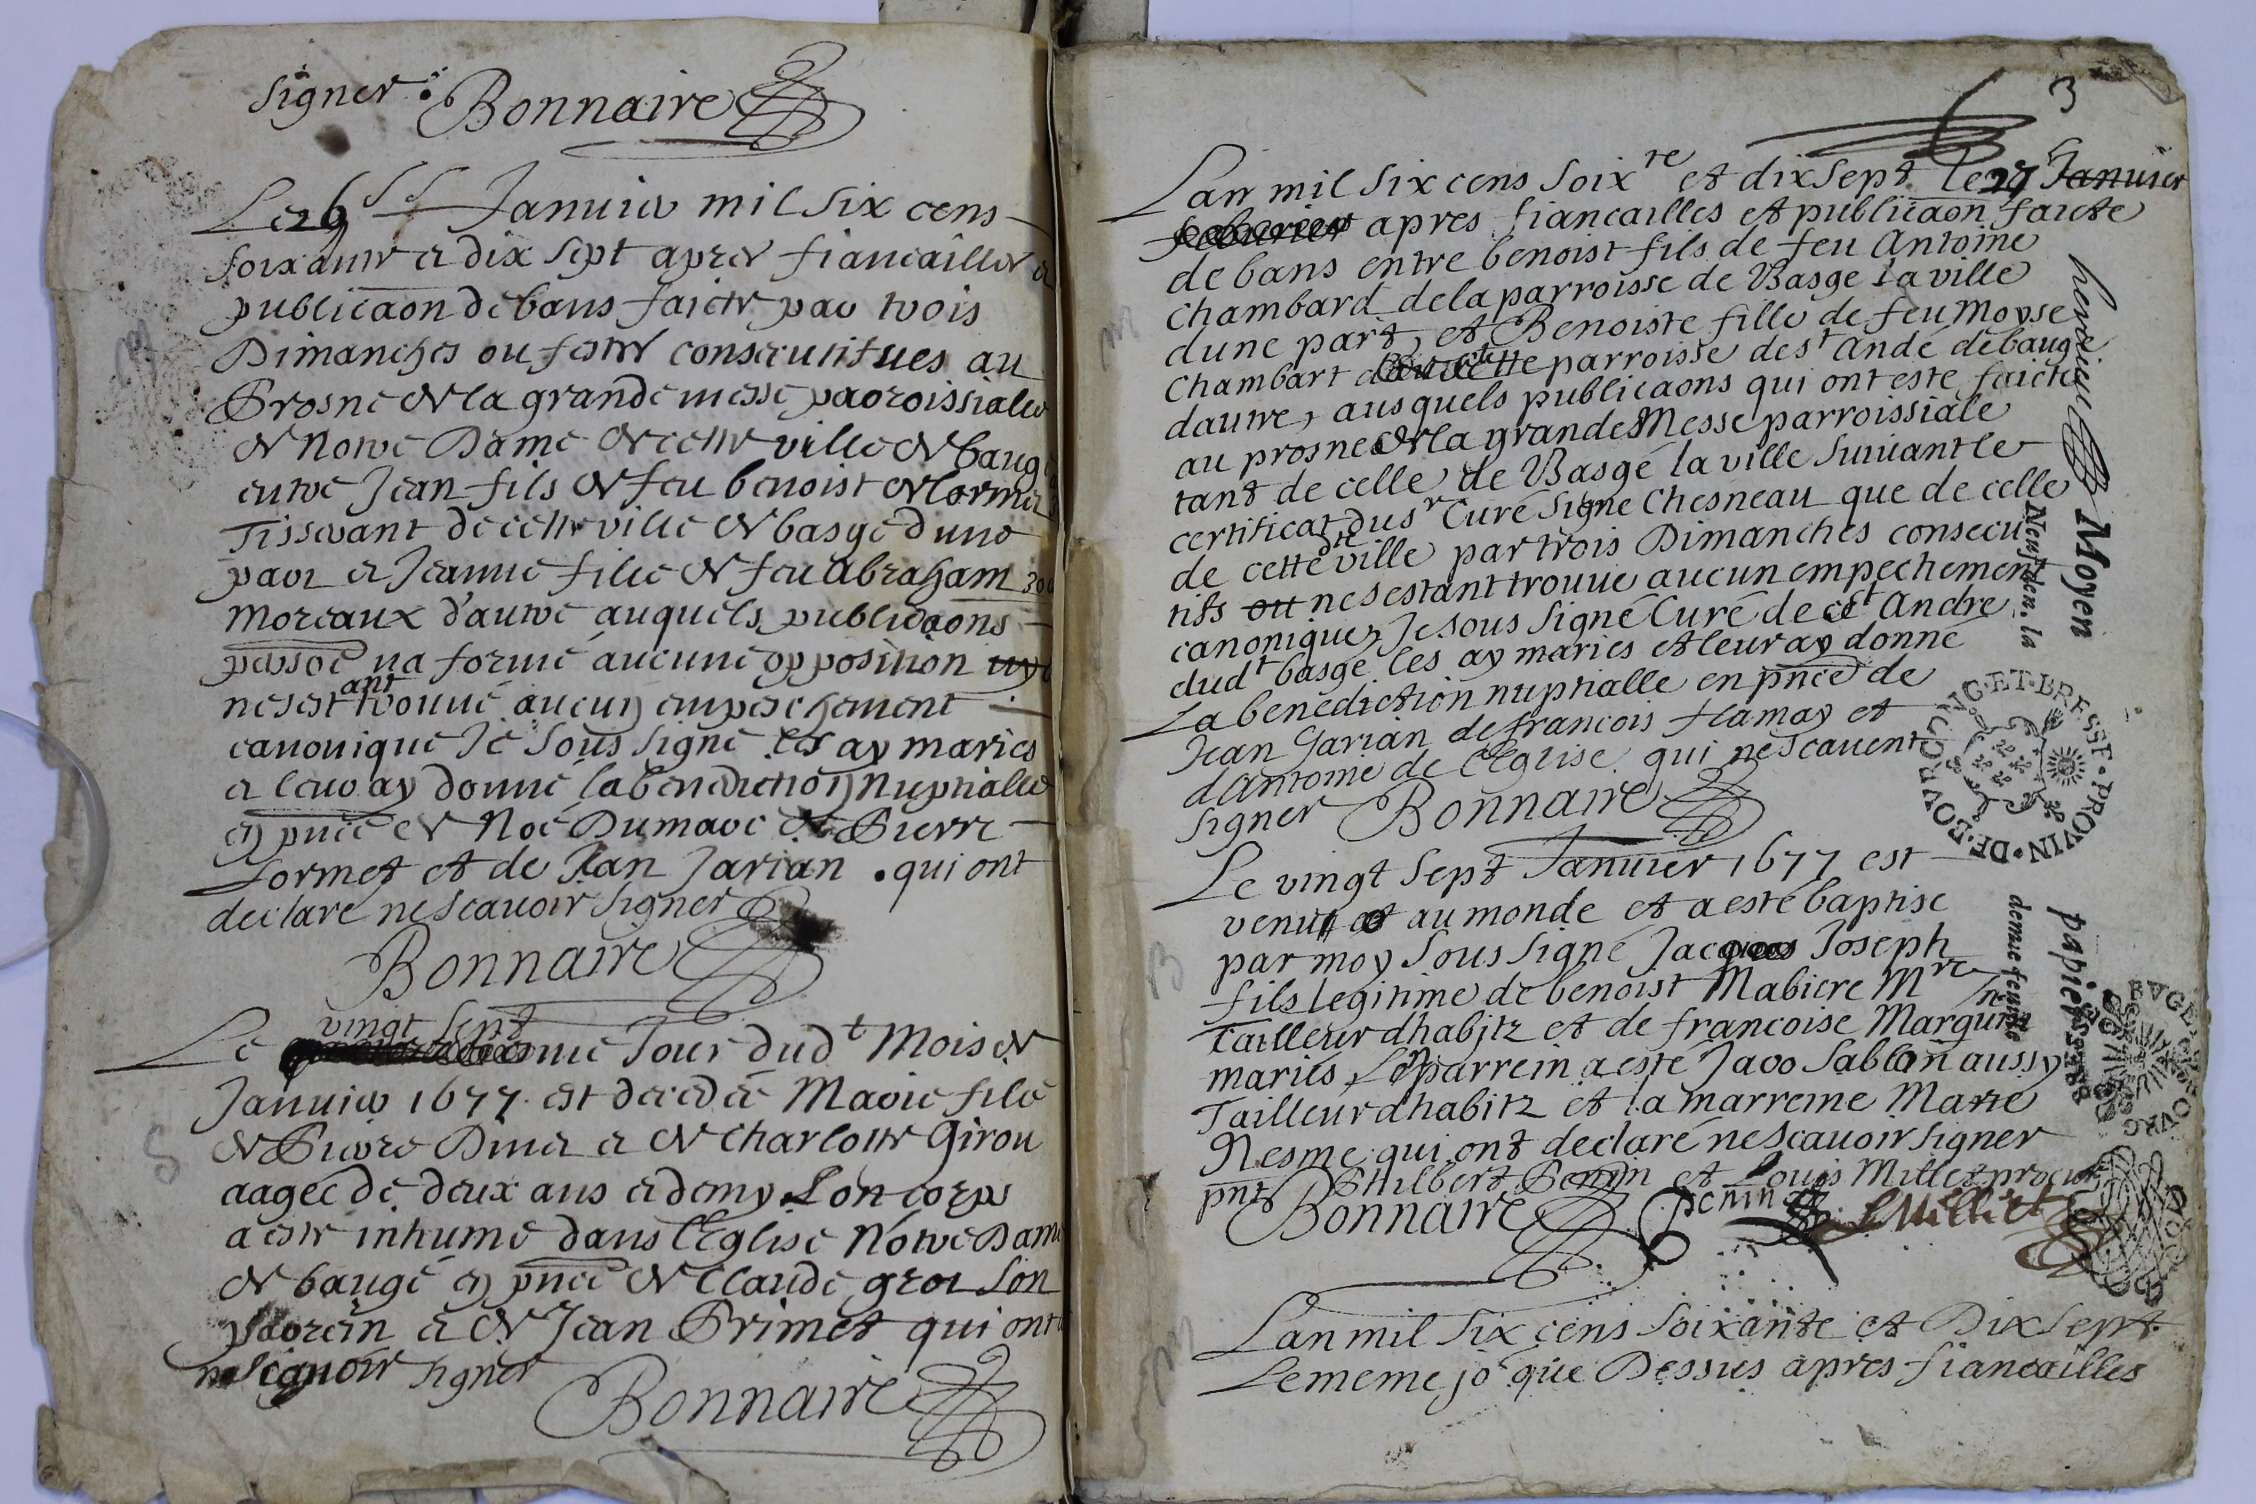 signer Bonnaire
Le 26 Januier mil six cens
soixante et dix sept apres fiancailles et
publicaon de bans faicte par trois
Dimanches ou festes consecutifues au
Prosne de la grande messe parroissiale
de Notre Dame de cette ville de baugé
entre Jean fils de feu benoist de
Tisserant de cette ville de basgé d'une
part et Jeanne fille de feu abraham
moreaux d'autre auquels publicaons
na formé aucune opposition
nes estant trouué aucun empeschement
canonique Je sous signé les ay mariés
et leur ay donné la benediction nuptialle
en pnce de Noé Dumarc de Pierre
formet et de Jean Jarian . qui ont
declaré ne scauoir signer
Bonnaire
vingt sept
Le me Jour dudt Mois de
Januier 1677. est decedée Marie fille
de Pierre et de Charlotte Girou
aagee de deux ans et demy son corps
a este inhumé dans l'Eglise Notre Dame
de baugé en pnce de Claude son
parrein et de Jean Primet qui ont
ne scauoir signer
Bonnaire
3
Lan mil six cens soixte et dix sept le 27 Januier
feburier apres fiancailles et publicaon faicte
de bans entre benoist fils de feu Antoine
Chambard de la parroisse de Basge la ville
dune part, et Benoiste fille de feu Moyse
Chambart parroisse de st André de baugé
dautre, ausquels publicaons qui ont esté faicte
au prosne de la grande Messe parroissiale
tant de celle de Basgé la ville suiuant le
certificat du sr Curé signé Chesneau que de celle
de cette dte ville par trois Dimanches consecu
tifs ou nes estant trouué aucun empechement
canonique, Je sous signé Curé de st André
dudt basgé les ay mariés et leur ay donné
La benediction nuptialle en pnce de
Jean Jarian de francois flamay et
d'Antoine de l'Eglise qui ne scauent
signer Bonnaire
Le vingt sept Januier 1677 est
venu au monde et a esté baptisé
par moy sous signé Jacques Joseph
fils legitime de benoist Mabiere Mre
Tailleur dhabitz et de francoise Marguin
mariés, Le parrein a esté Jaoo Sablon aussy
Tailleur dhabitz et la marreine Marie
Nesme qui ont declaré ne scauoir signer
pnts Philbert Penin et Louis Millet
Bonnaire Penin LMilliet
Lan mil six cens soixante et Dix Sept
Le meme jor que Dessus apres fiancailles
Moyen papier
Neuf den. la demie feuille
BOURG·ET·BRESSE·PROVIN·DE·BOURG